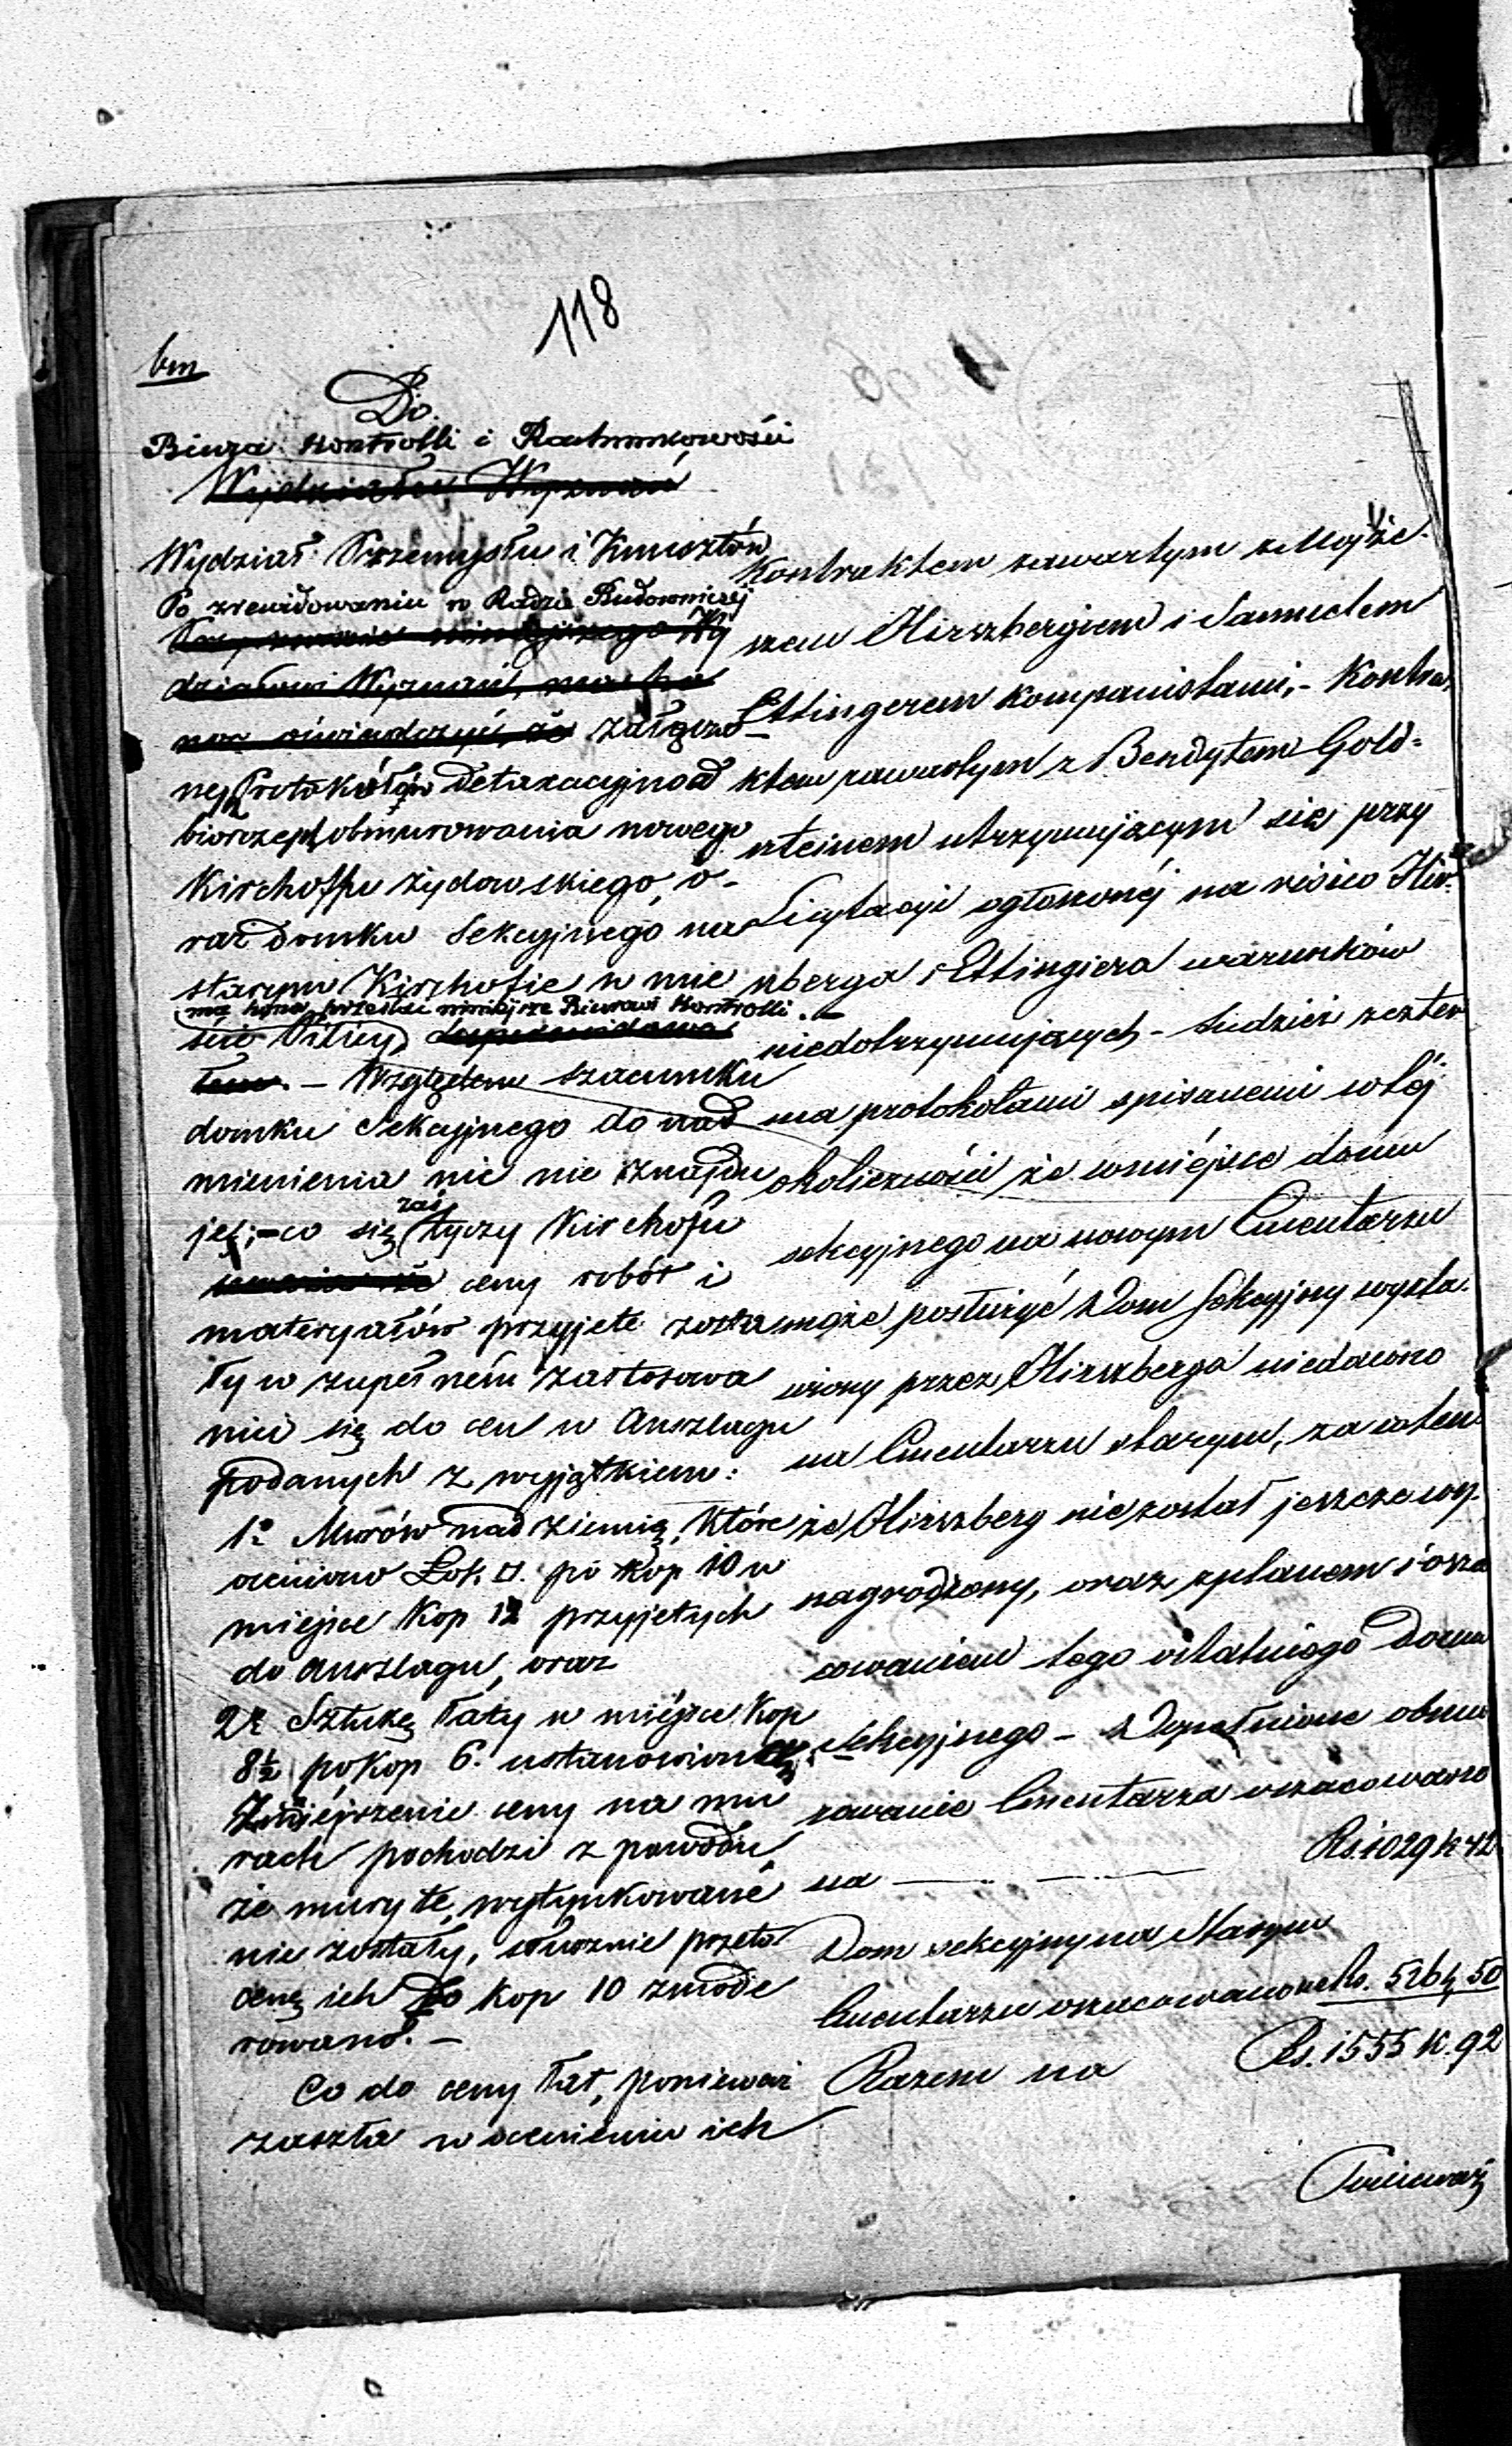 118
bm
Do
Biura Kontrolli i Rachunkowości
Wydziału Wyznań
Wydział Przemysłu i Kunsztów
Po zrewidowaniu w Radzie Budowniczej
działowi Wyznań, ma ho
nor oświadczyć, że załączo
nych Protokułów detaxacyjno od
biorczych obmurowania nowego
Kirchoffu żydowskiego, o-
raz domku Sekcyjnego na
starym Kirchofie w mie
ma honor przesłać niniejsze Biurowi Kontrolli.
ście Pilicy,
– Względem szacunku
domku Sekcyjnego do nad
mienienia nic nie znajdu
je; – co się zaś tyczy Kirchofu
ceny robót i
materyałów przyjęte zosta
ły w zupełném zastosowa
niu się do cen w Anszlagu
podanych z wyjątkiem:
1° Murów nad ziemią, które
oceniono Łok. □. po Kop 10 w
miejsce Kop 12 przyjętych
do Anszlagu, oraz
2° Sztukę łaty w miejsce Kop
8½ po Kop 6. ustanowioną
Zmniejszenie ceny na mu
rach pochodzi z powodu
że mury te, wytynkowane
nie zostały, słusznie przeto
cenę ich do Kop 10 zmode
rowano. –
Co do ceny łat, ponieważ
zaszła w ocenieniu ich
Kontraktem zawartym z Mojże
szem Hirszbergiem i Samuelem
Ettingerem kompanistami, – Kontra
ktem zawartym z Bendytem Gold=
steinem utrzymującym się przy
Licytacyi ogłoszonéj na risico Hir
szberga i Ettingiera warunków
niedotrzymujących – tudzież czter
ma protokołami spisanemi w téj
okoliczności że w miéjsce domu
sekcyjnego na nowym Cmentarzu
może posłużyć Dom Sekcyjny wysta
wiony przez Hirszberga niedawno
na Cmentarzu starym, za wten
że Hirszberg nie został jeszcze wy
nagrodzony, oraz z planem i osza
cowaniem tego ostatniego Domu
sekcyjnego – Dopełnione obmu
rowanie Cmentarza oszacowano
na — — Rs. 1029 k 42
Dom sekcyjny na Starym
Cmentarzu oszacowano na Rs. 526 k 50
Razem na Rs. 1555 k. 92
Ponieważ